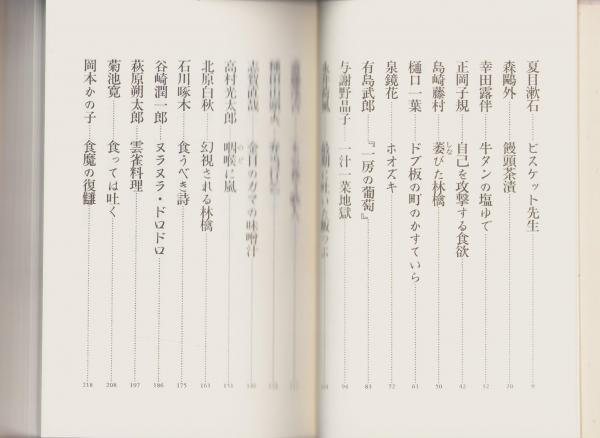 夏目漱石 ビスケット先生 9
森鷗外 饅頭茶漬 20
幸田露伴 牛タンの塩ゆで 32
正岡子規 自己を攻撃する食欲 42
島崎藤村 萎びた林檎 50
しな
樋口一葉 ドブ板の町のかすていら 61
泉鏡花 ホオズキ 72
有島武郎 『一房の葡萄』 83
与謝野晶子 一汁一菜地獄 94
志賀直哉 金目のガマの味噌汁
高村光太郎 咽喉に嵐 151
のど
北原白秋 幻視される林檎 163
石川啄木 食うべき詩 175
谷崎潤一郎 ヌラヌラ・ドロドロ 186
萩原朔太郎 雲雀料理 197
菊池寛 食っては吐く 208
岡本かの子 食魔の復讐 218